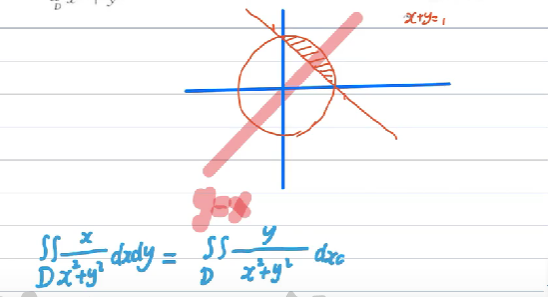 x+y=1
y=x
∬_D x/(x²+y²) dxdy = ∬_D y/(x²+y²) dx